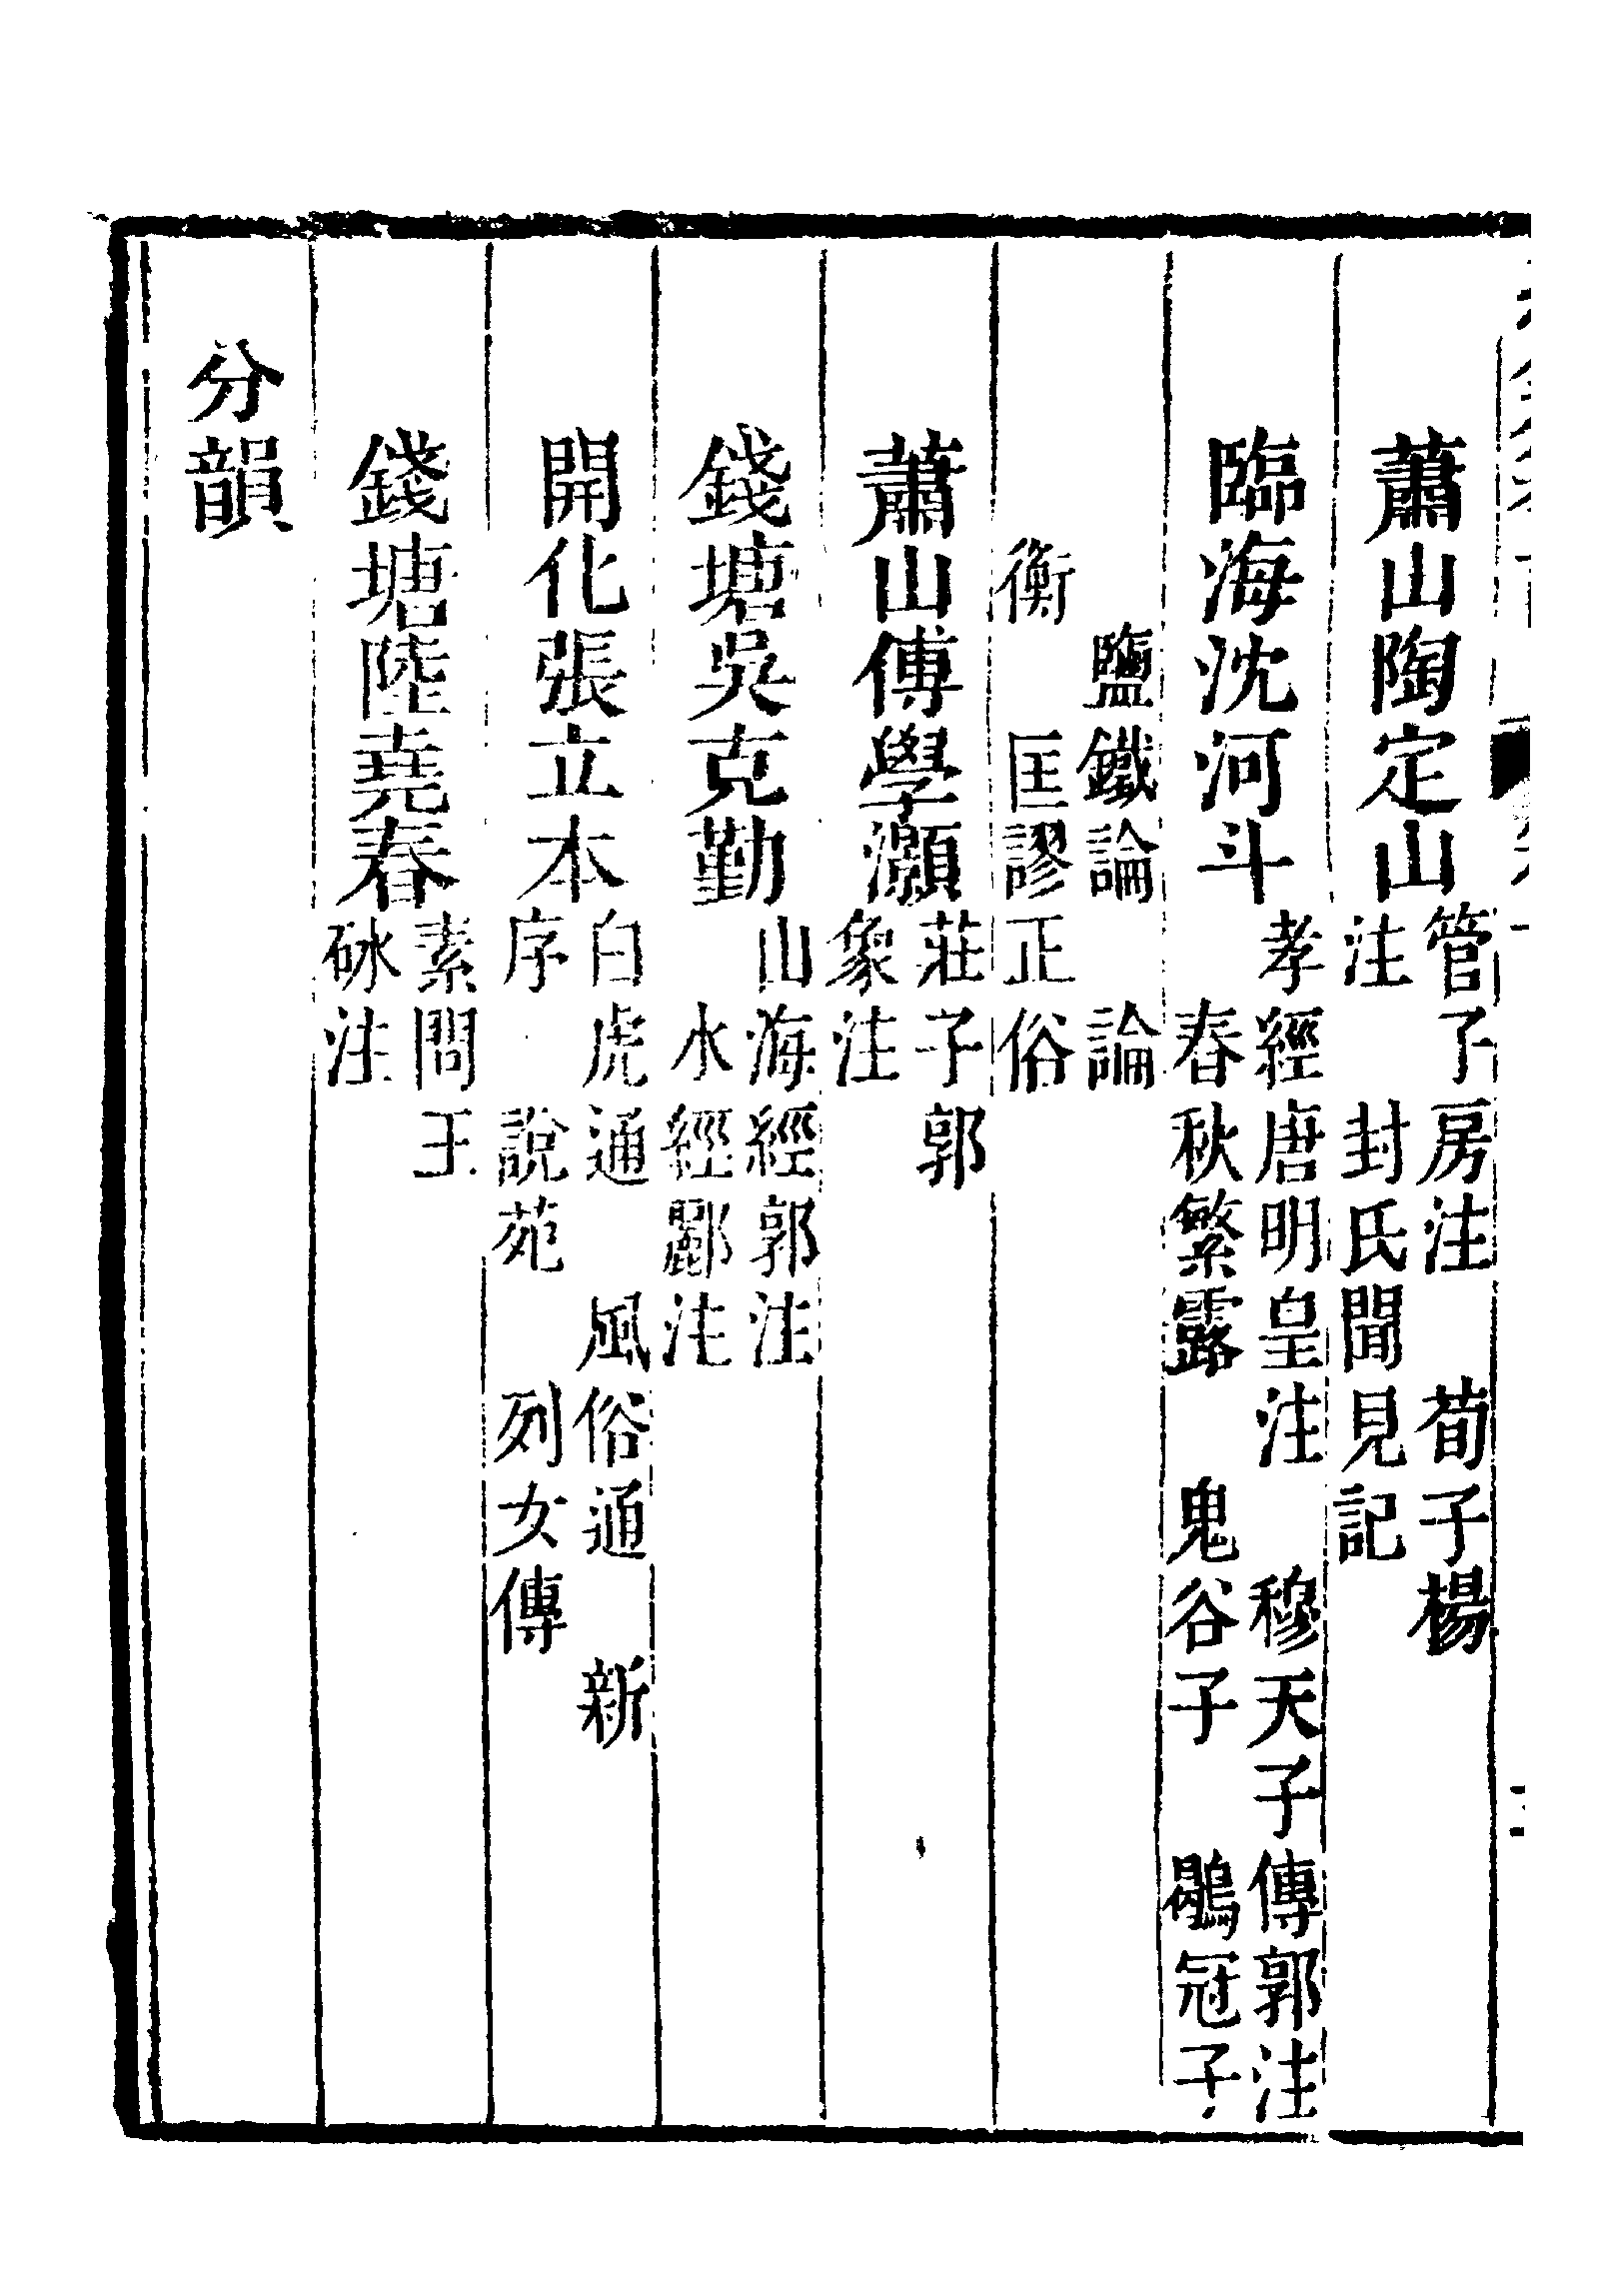 蕭山陶定山 管子房注 荀子楊
注 封氏聞見記
臨海沈河斗 孝經唐明皇注 穆天子傳郭注
春秋繁露 鬼谷子 鶡冠子
鹽鐵論 論
衡 匡謬正俗
蕭山傅學灝 莊子郭
象注
錢塘吳克勤 山海經郭注
水經酈注
開化張立本 白虎通 風俗通 新
序 說苑 列女傳
錢塘陸堯春 素問王
砅注
分韻